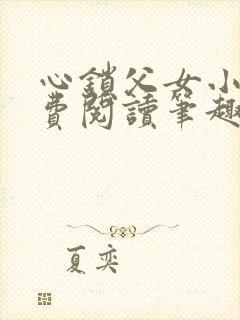 心鎖父女小
費閱讀筆趣
夏奕